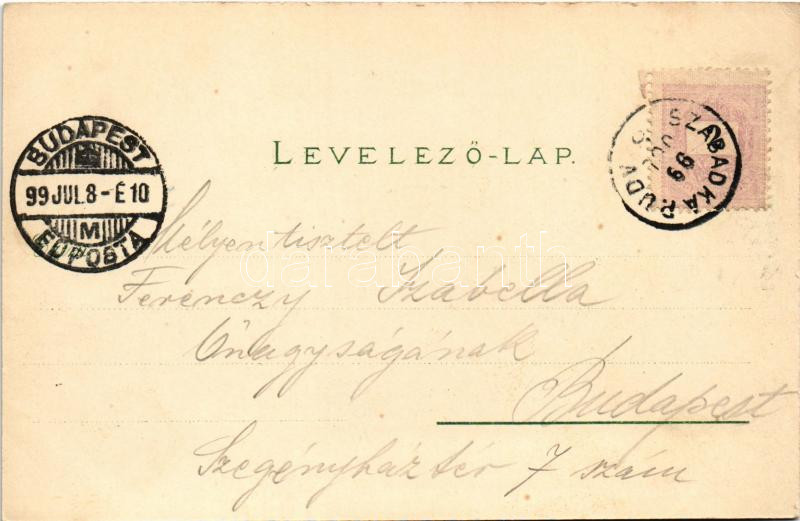 LEVELEZŐ-LAP.
BUDAPEST
99 JUL. 8 - É 10
M
FŐPOSTA
SZABADKA P.UDV
99
Mélyen tisztelt
Ferenczy Izabella
Őnagyságának
Budapest
Szegényháztér 7 szám
darabanth